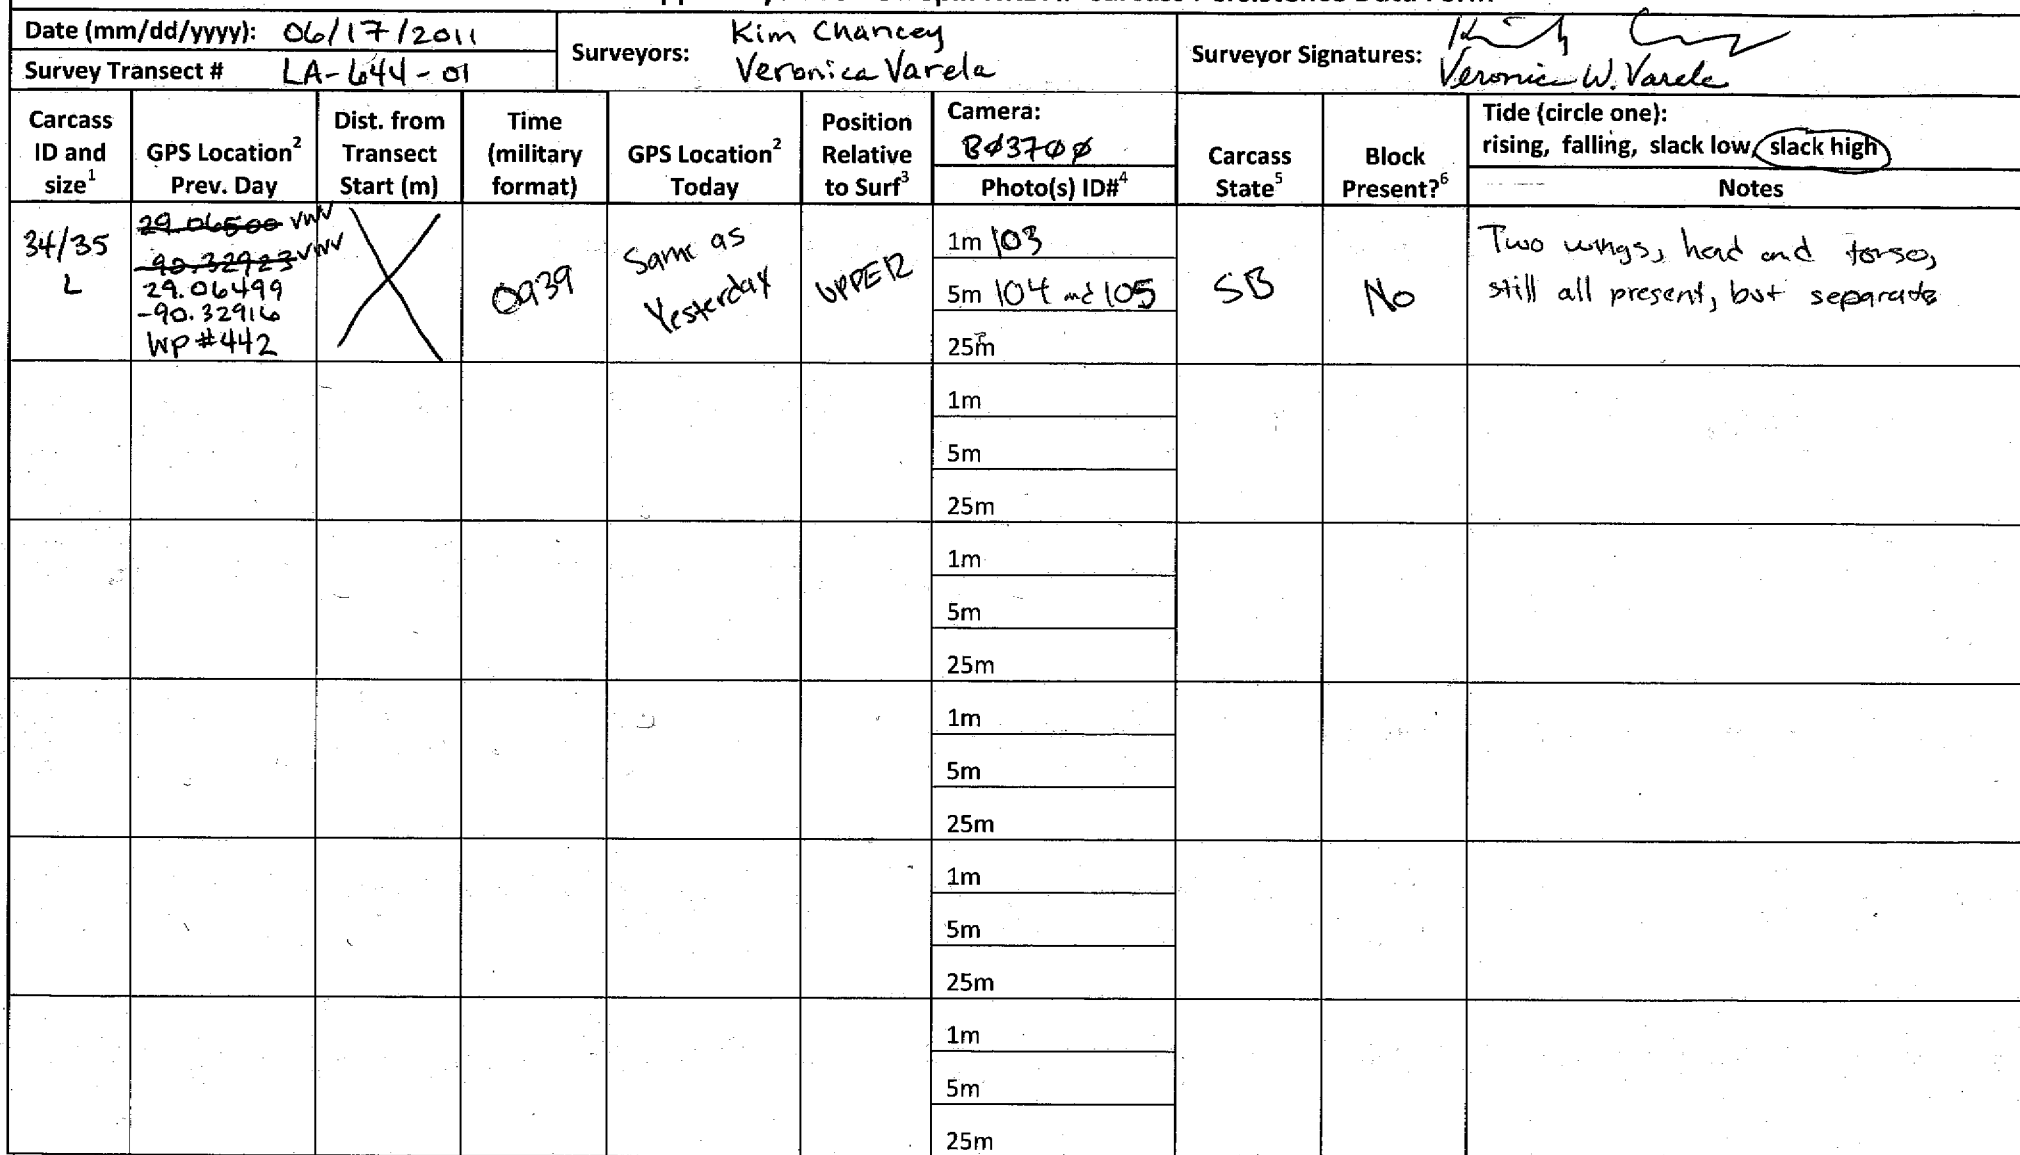 Carcass Persistence Data Form
Date (mm/dd/yyyy): 06/17/2011
Survey Transect # LA-644-01
Surveyors: Kim Chancey
Veronica Varela
Surveyor Signatures:
Veronica W. Varela
Carcass ID and size1
GPS Location2 Prev. Day
Dist. from Transect Start (m)
Time (military format)
GPS Location2 Today
Position Relative to Surf3
Camera:
BØ37ØØ
Photo(s) ID#4
Carcass State5
Block Present?6
Tide (circle one):
rising, falling, slack low, slack high
Notes
34/35
L
29.06500 VWV
-90.32923 VWV
29.06499
-90.32916
WP #442
X
0939
Same as
Yesterday
UPPER
1m 103
5m 104 and 105
25m
SB
No
Two wings, head and torso,
still all present, but separate
1m
5m
25m
1m
5m
25m
1m
5m
25m
1m
5m
25m
1m
5m
25m